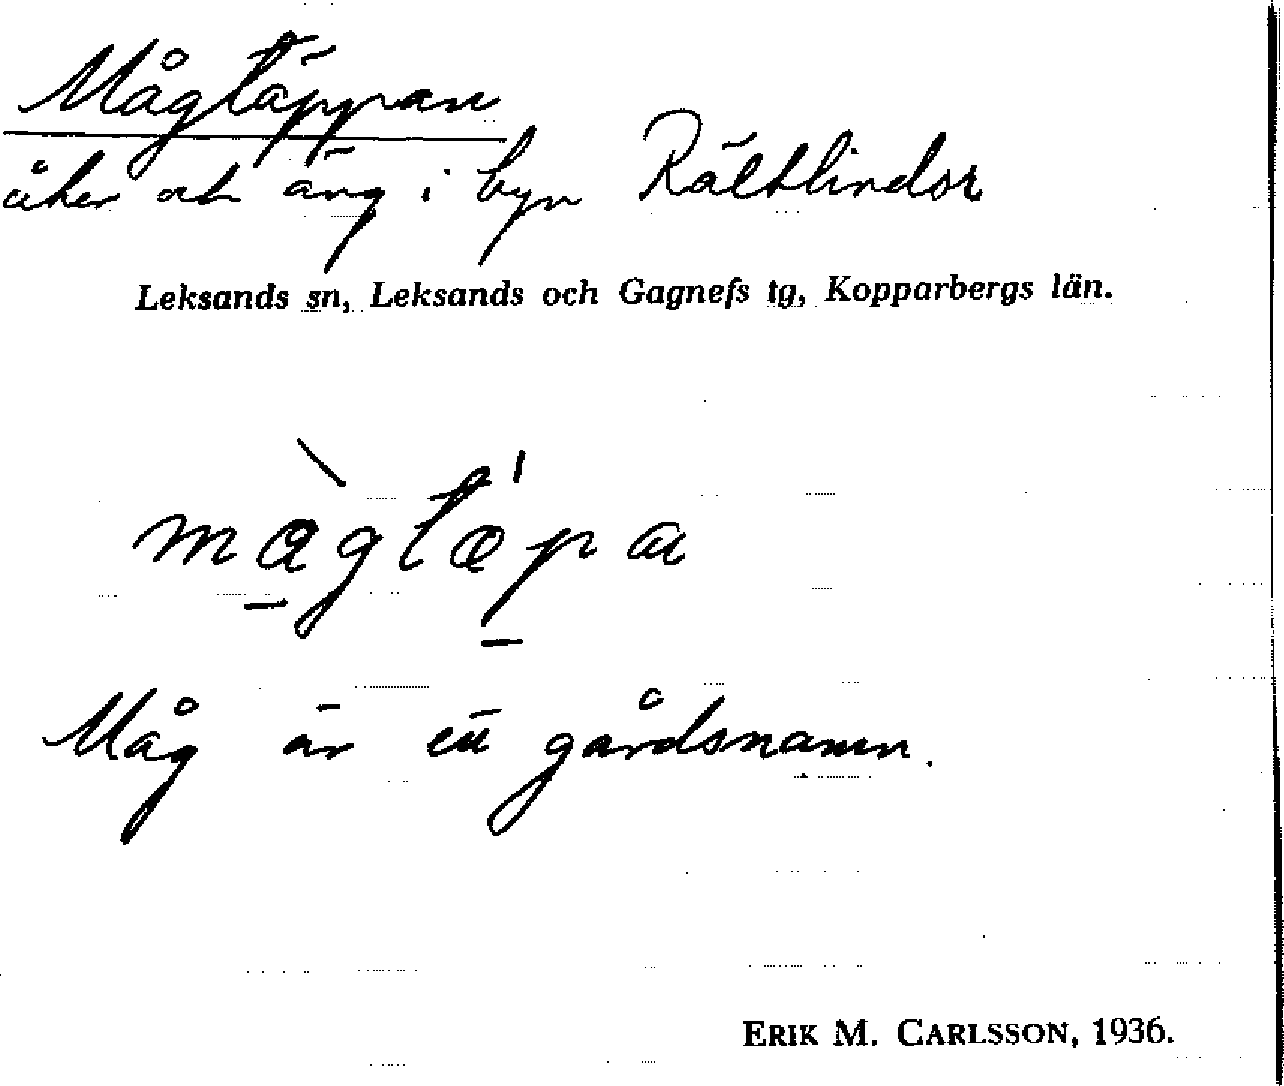 Mågtäppan
åker och äng i byn Rältlindor
Leksands sn, Leksands och Gagnefs tg, Kopparbergs län.
Måg är ett gårdsnamn.
ERIK M. CARLSSON, 1936.